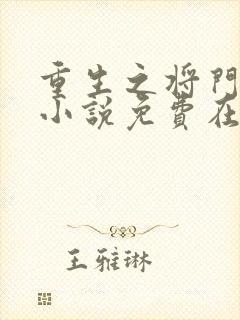 重生之将門
小説免費在
王雅琳